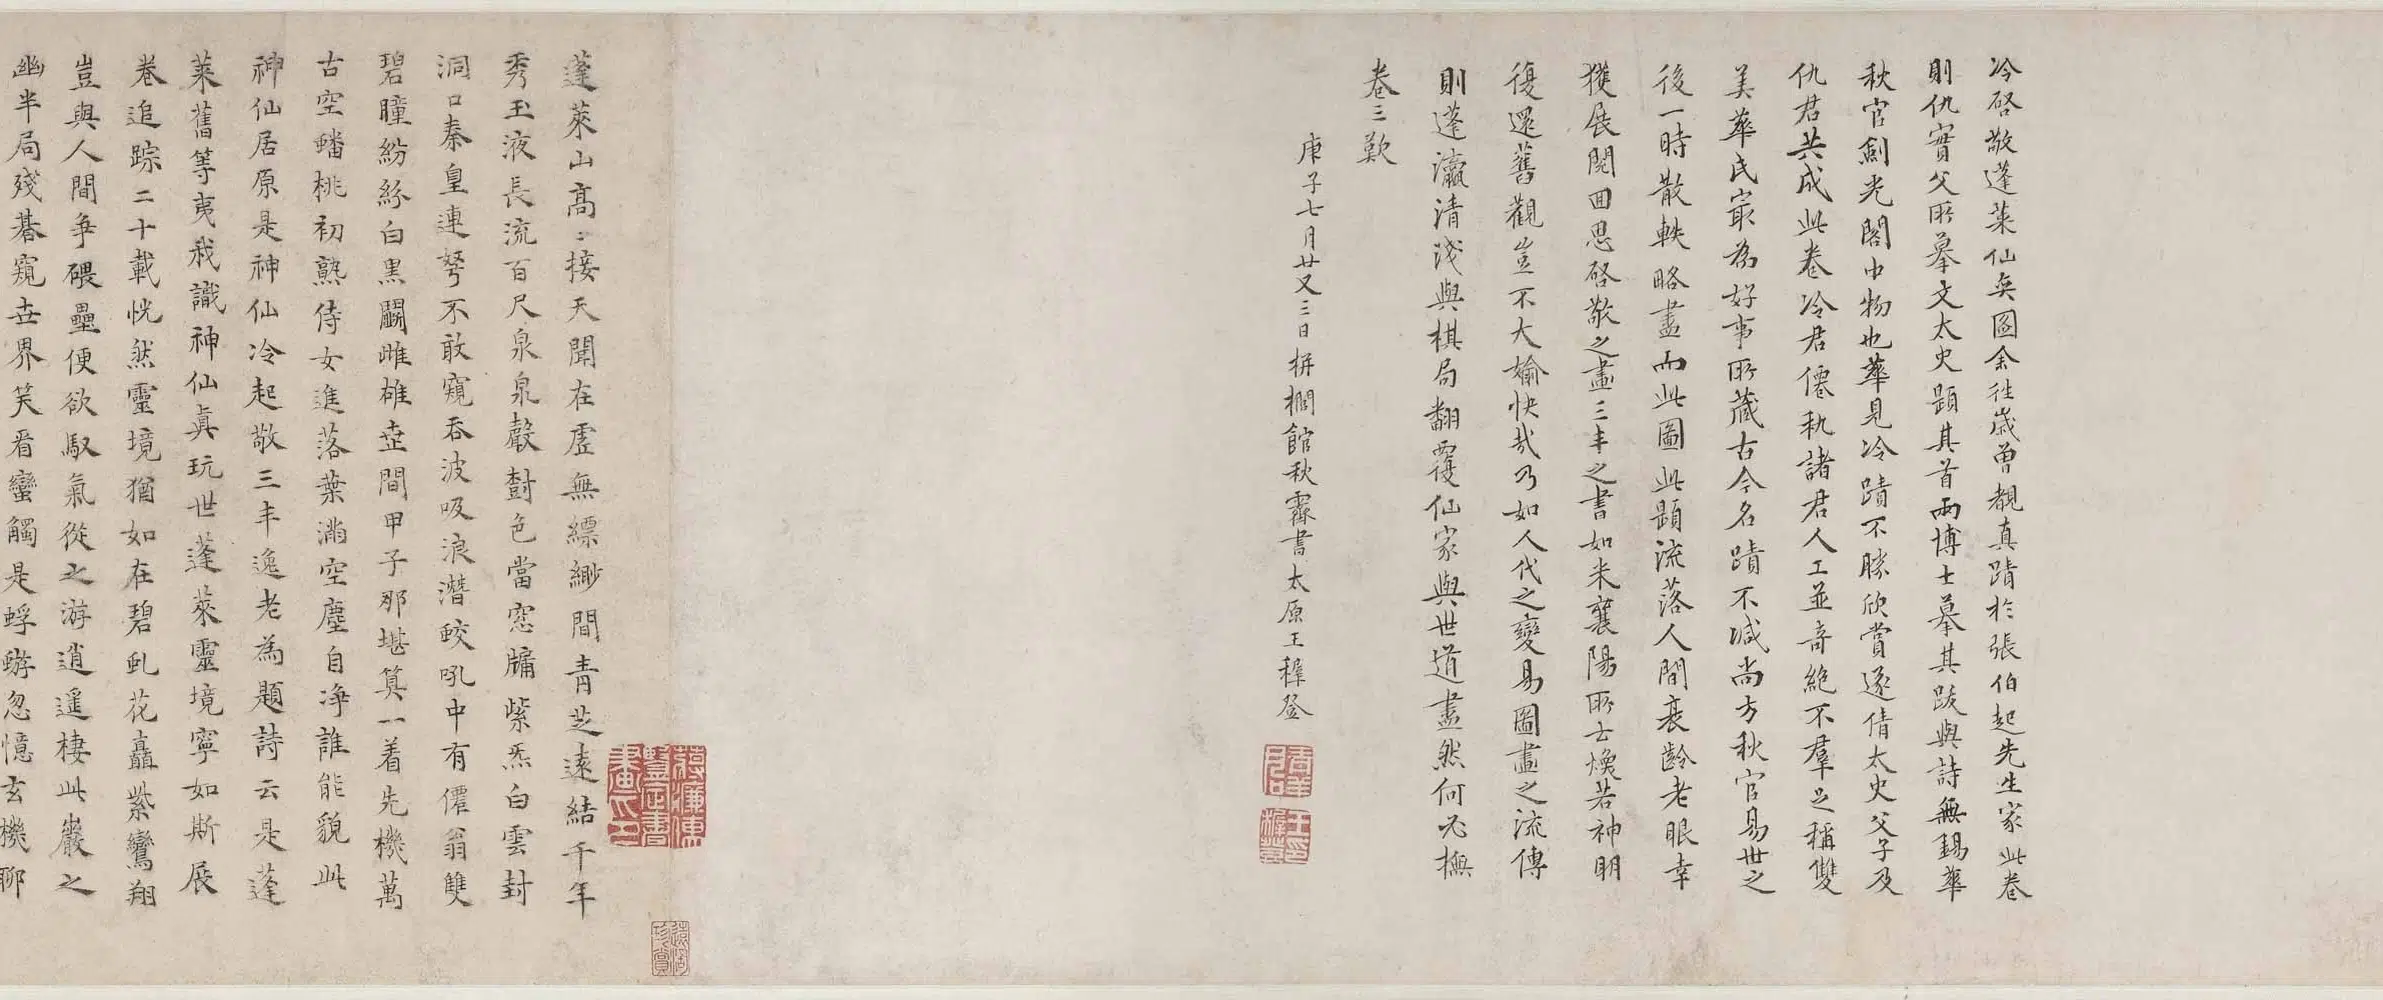 冷啓敬蓬萊仙奕圖余往歲曾覩真蹟於張伯起先生家此卷
則仇實父所摹文太史題其首兩博士摹其跋與詩無錫華
秋官劍光閣中物也華見冷蹟不勝欣賞遂倩太史父子及
仇君共成此卷冷君僊執諸君人工並奇絶不羣足稱雙
美華氏寂為好事所藏古今名蹟不减尚方秋官易世之
後一時散軼略盡而此圖此題流落人間衰齡老眼幸
獲展閱囬思啓敬之畫三丰之書如米襄陽所士煥若神明
復還舊觀豈不大媮快哉乃如人代之變易圖畫之流傳
則蓬瀛清淺與棋局翻覆仙家與世道盡然何必撫
卷三歎
庚子七月廿又三日栟櫚館秋霖書太原王穉登
王穉登印
蓬萊山高〻接天閣在虛無縹緲間青芝遠結千年
秀玉液長流百尺泉泉聲尌色當窓牖紫炁白雲封
洞口秦皇連弩不敢窺吞波吸浪潛蛟吼中有僊翁雙
碧瞳紛紛白黒鬭雌雄壺間甲子那堪筭一着先機萬
古空蟠桃初熟侍女進落葉滿空塵自凈誰能貌此
神仙居原是神仙冷起敬三丰逸老為題詩云是蓬
萊舊等夷我識神仙眞玩世蓬萊靈境寧如斯展
卷追踪二十載恍然靈境猶如在碧虬花驫紫鸞翔
豈與人間爭磈壘便欲馭氣從之游逍遥棲此巖之
幽半局殘碁窺世界笑看蠻觸是蜉蝣忽憶玄機聊